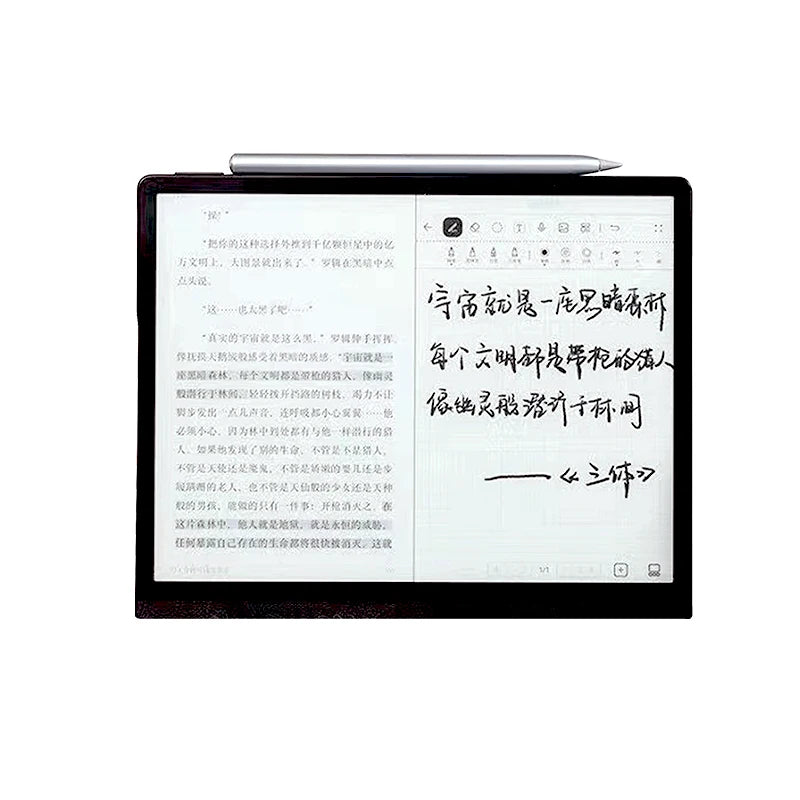 “操！”
“把你的这种选择外推到千亿颗恒星中的亿
万文明上，大图景就出来了。”罗辑在黑暗中点
点头说。
“这……也太黑了吧……”
“真实的宇宙就是这么黑。”罗辑伸手挥挥，
像抚摸天鹅绒般感受着黑暗的质感，“宇宙就是一
座黑暗森林，每个文明都是带枪的猎人，像幽灵
般潜行于林间，轻轻拨开挡路的树枝，竭力不让
脚步发出一点儿声音，连呼吸都小心翼翼……他
必须小心，因为林中到处都有与他一样潜行的猎
人，如果他发现了别的生命，不管是不是猎人，
不管是天使还是魔鬼，不管是娇嫩的婴儿还是步
履蹒跚的老人，也不管是天仙般的少女还是天神
般的男孩，能做的只有一件事：开枪消灭之。在
这片森林中，他人就是地狱，就是永恒的威胁，
任何暴露自己存在的生命都将很快被消灭，这就
宇宙就是一座黑暗森林
每个文明都是带枪的猎人
像幽灵般潜行于林间
——《三体》
1/1